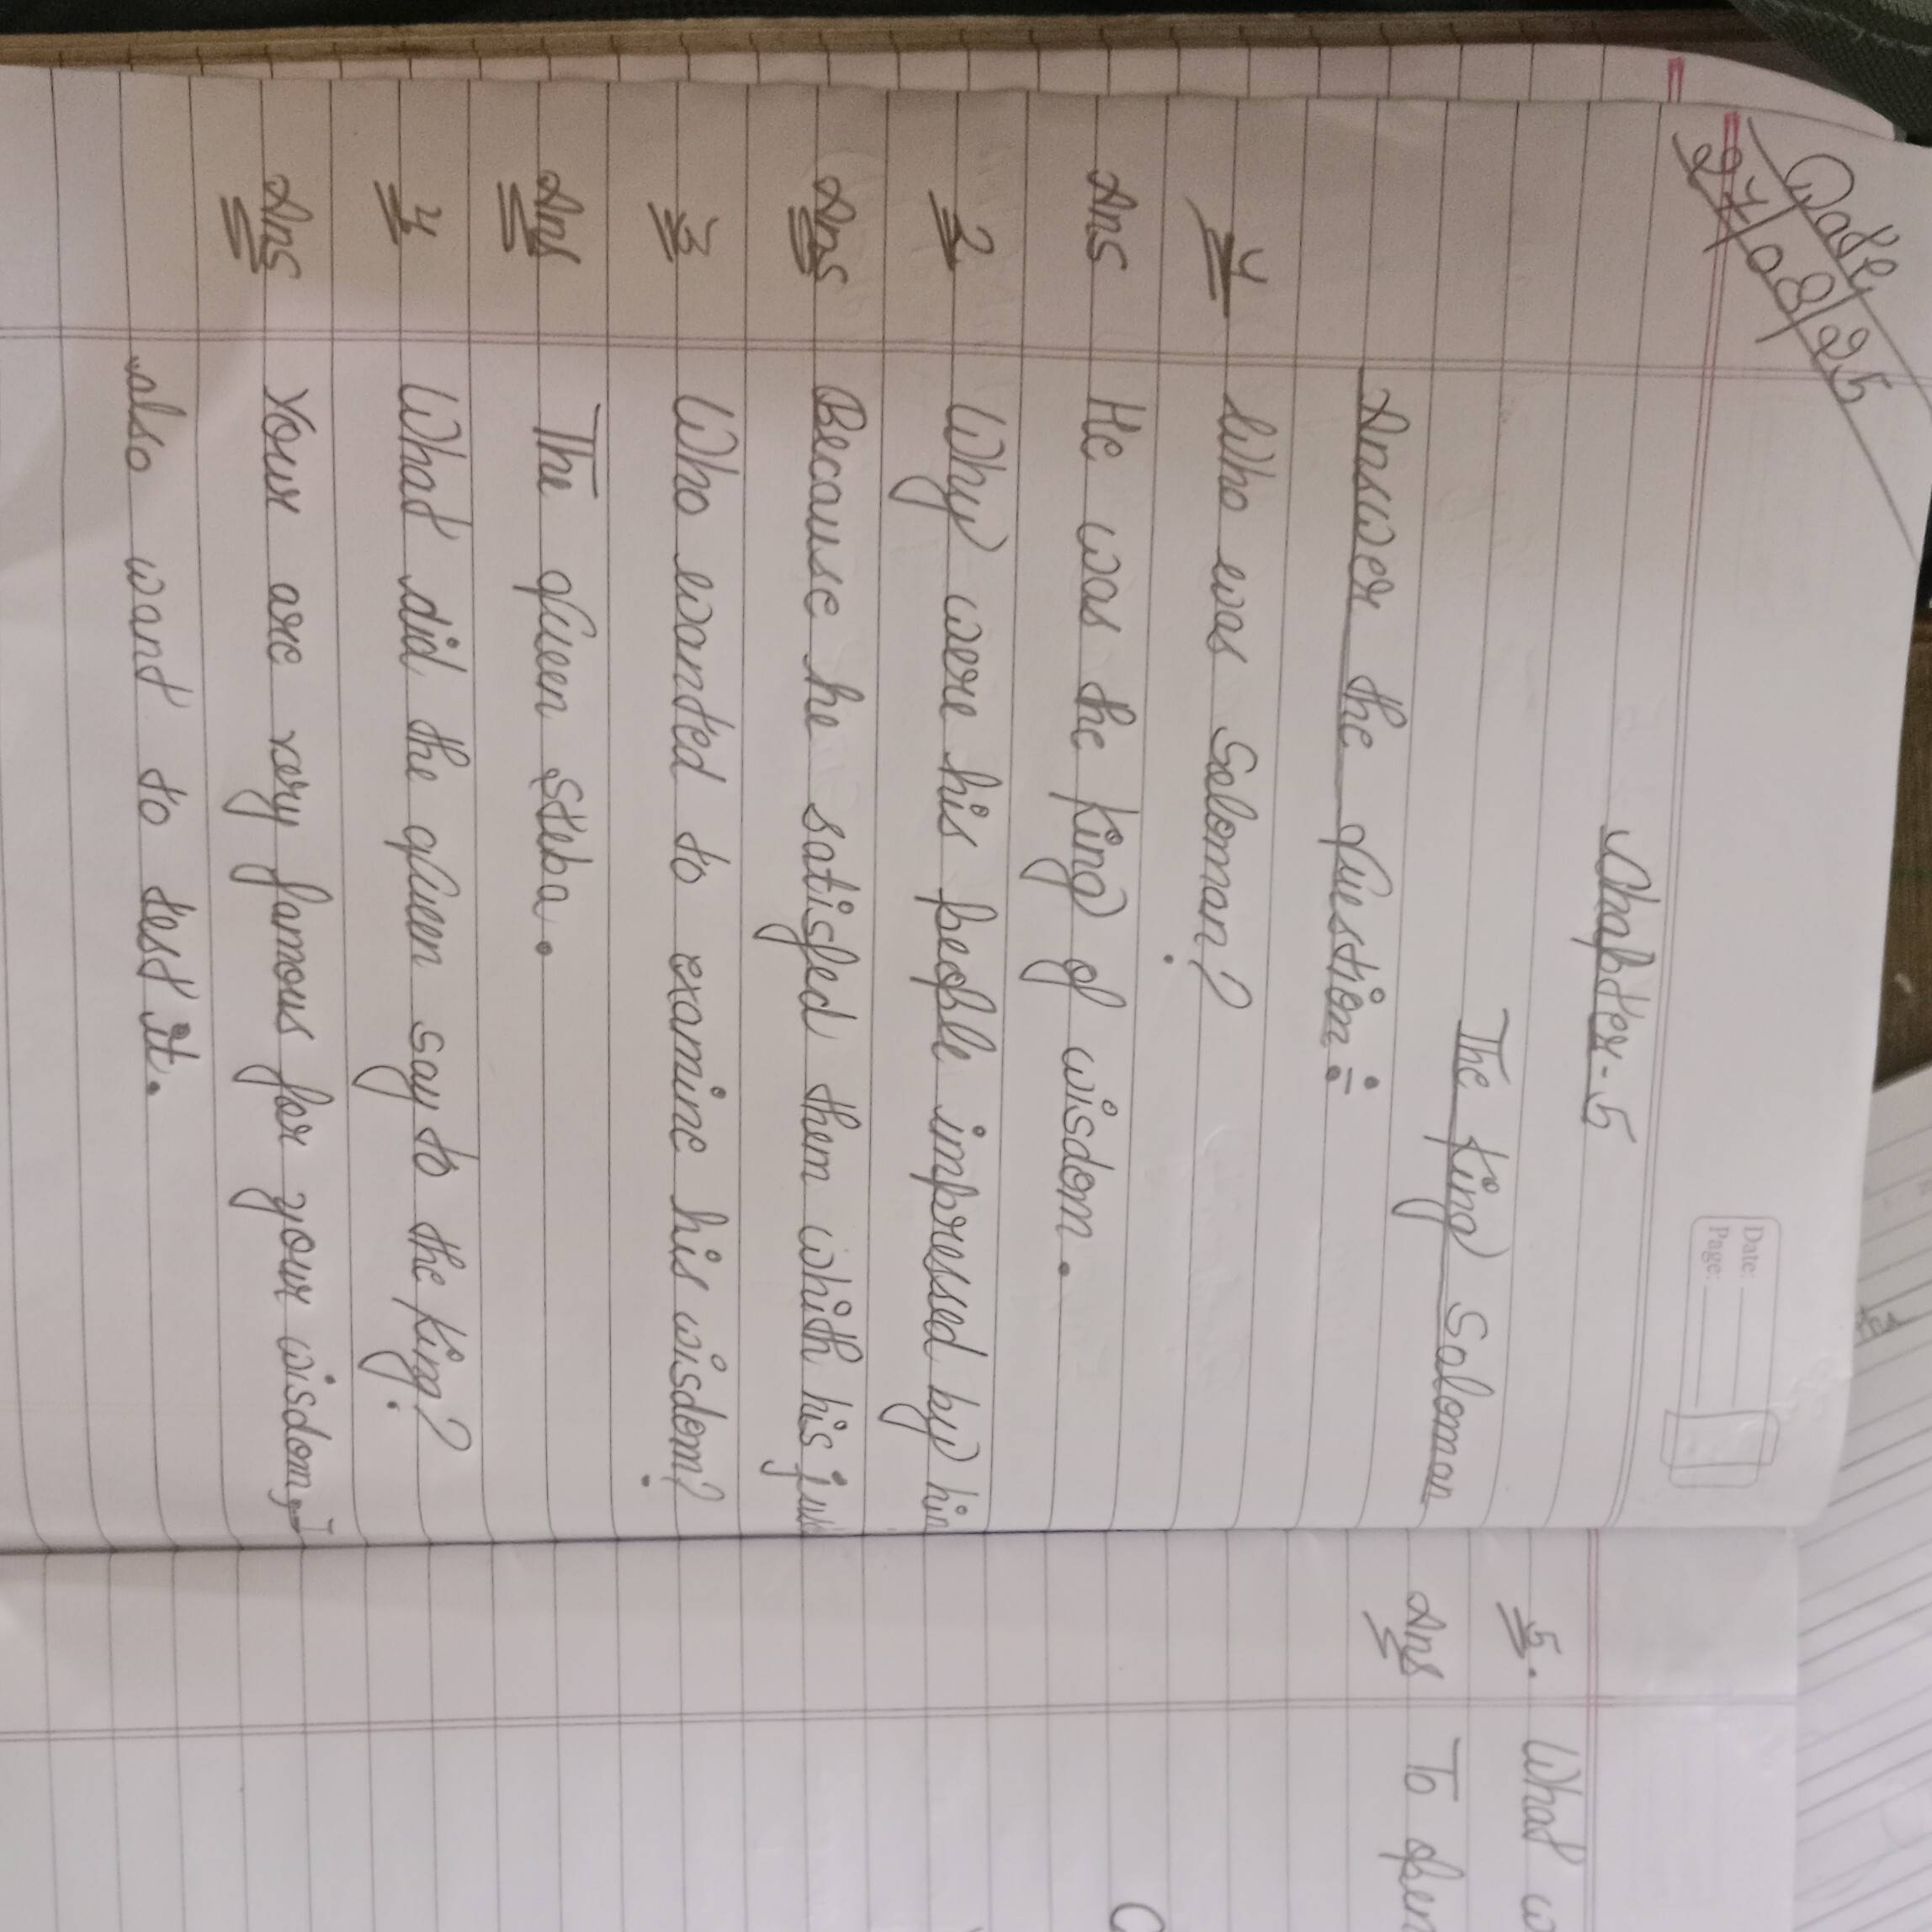 Date
27/08/25
Date:
Page:
Chapter-5
The King Soloman
Answer the question:-
1 Who was Soloman?
Ans He was the King of wisdom.
2 Why were his people impressed by him
Ans Because he satisfied them whith his
3 Who wanted to examine his wisdom?
Ans The queen Steba.
4 What did the queen say to the king?
Ans Your are very famous for your wisdom,
also want to test it.
5. What w
Ans To open